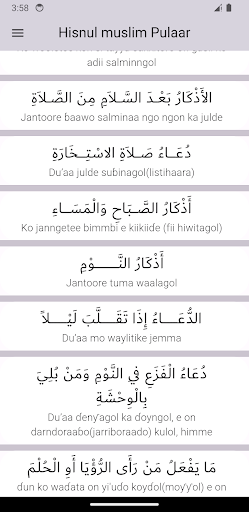 3:58
Hisnul muslim Pulaar
adii salminngol
الأَذْكَارُ بَعْدَ السَّلاَمِ مِنَ الصَّلاَةِ
Jantoore baawo salminaa ngo ngon ka julde
دُعَاءُ صَلاَةِ الاسْتِـخَارَةِ
Du'aa julde suɓinagol(listihaara)
أَذْكَارُ الصَّـبَاحِ وَالْمَسَـاءِ
Ko janngetee bimmbi e kiikiiɗe (fii hiwitagol)
أَذْكَارُ النَّـــوْمِ
Jantoore tuma waalagol
الدُّعَـــاءُ إِذَا تَقَـــلَّبَ لَيْـــلاً
Du'aa mo waylitike jemma
دُعَاءُ الْفَزَعِ في النَّوْمِ وَمَنْ بُلِيَ
بِالْوِحْشَةِ
Du'aa ɗeny'agol ka ɗoyngol, e on
darndoraaɗo(jarriboraaɗo) kulol, himme
مَا يَفْعَلُ مَنْ رَأَى الرُّؤْيَا أَوِ الْحُلْمَ
ɗun ko waɗata on yi'uɗo koyɗol(moy'y'ol) e on